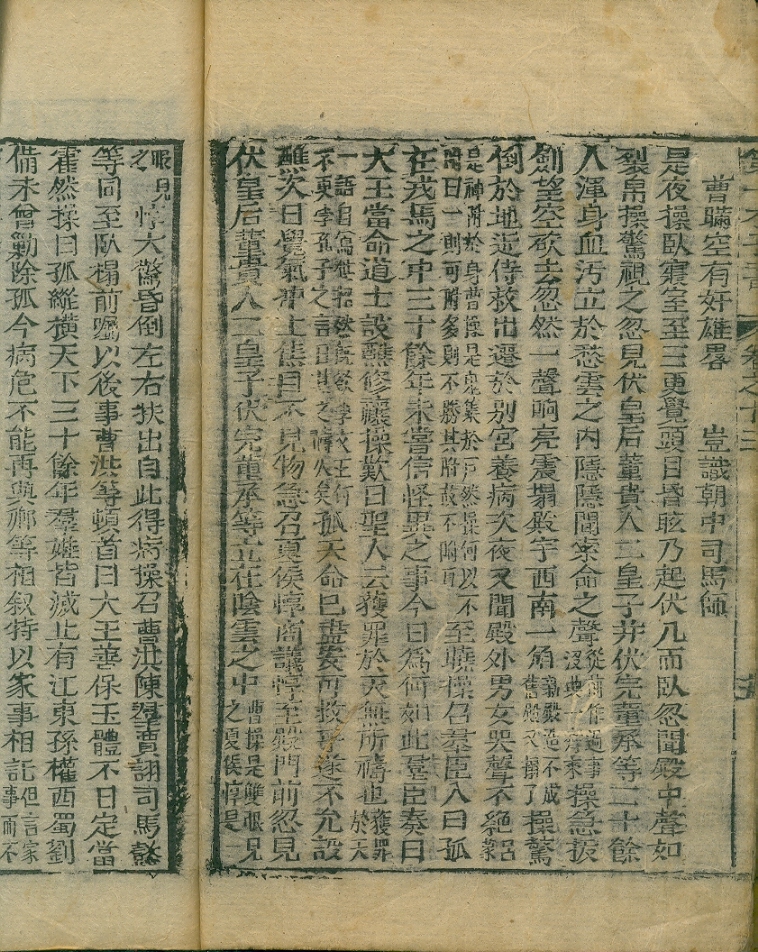 第一才子書 卷之十三
曹瞞空有奸雄畧 豈識朝中司馬師
是夜操臥寢室至三更覺頭目昏眩乃起伏几而臥忽聞殿中聲如
裂帛操驚視之忽見伏皇后董貴人二皇子并伏完董承等二十餘
人渾身血汚立於愁雲之內隱隱聞索命之聲從前作過事沒興一齊來操急拔
劍望空砍去忽然一聲响亮震塌殿宇西南一角新殿造不成舊殿又塌了操驚
倒於地近侍救出遷於別宮養病次夜又聞殿外男女哭聲不絕
是神附於身曹操是鬼集於戶然操何以不問曰一則可附多則不勝其附故不附耳至曉操召羣臣入曰孤
在戎馬之中三十餘年未嘗信怪異之事今日爲何如此羣臣奏曰
大王當命道士設醮修禳操歎曰聖人云獲罪於天無所禱也獲罪於天
一語自爲孤天命已盡安可救乎遂不允設
醮次日覺氣冲上焦目不見物急召夏侯惇商議惇至殿門前忽見
伏皇后董貴人二皇子伏完董承等立在陰雲之中曹操是雙眼見之夏侯惇是一
眼見之惇大驚昏倒左右扶出自此得病操召曹洪陳羣賈詡司馬懿
等同至臥榻前囑以後事曹洪等頓首曰大王善保玉體不日定當
霍然操曰孤縱橫天下三十餘年羣雄皆滅止有江東孫權西蜀劉
備未曾勦除孤今病危不能再與卿等相叙特以家事相託但言家事而不